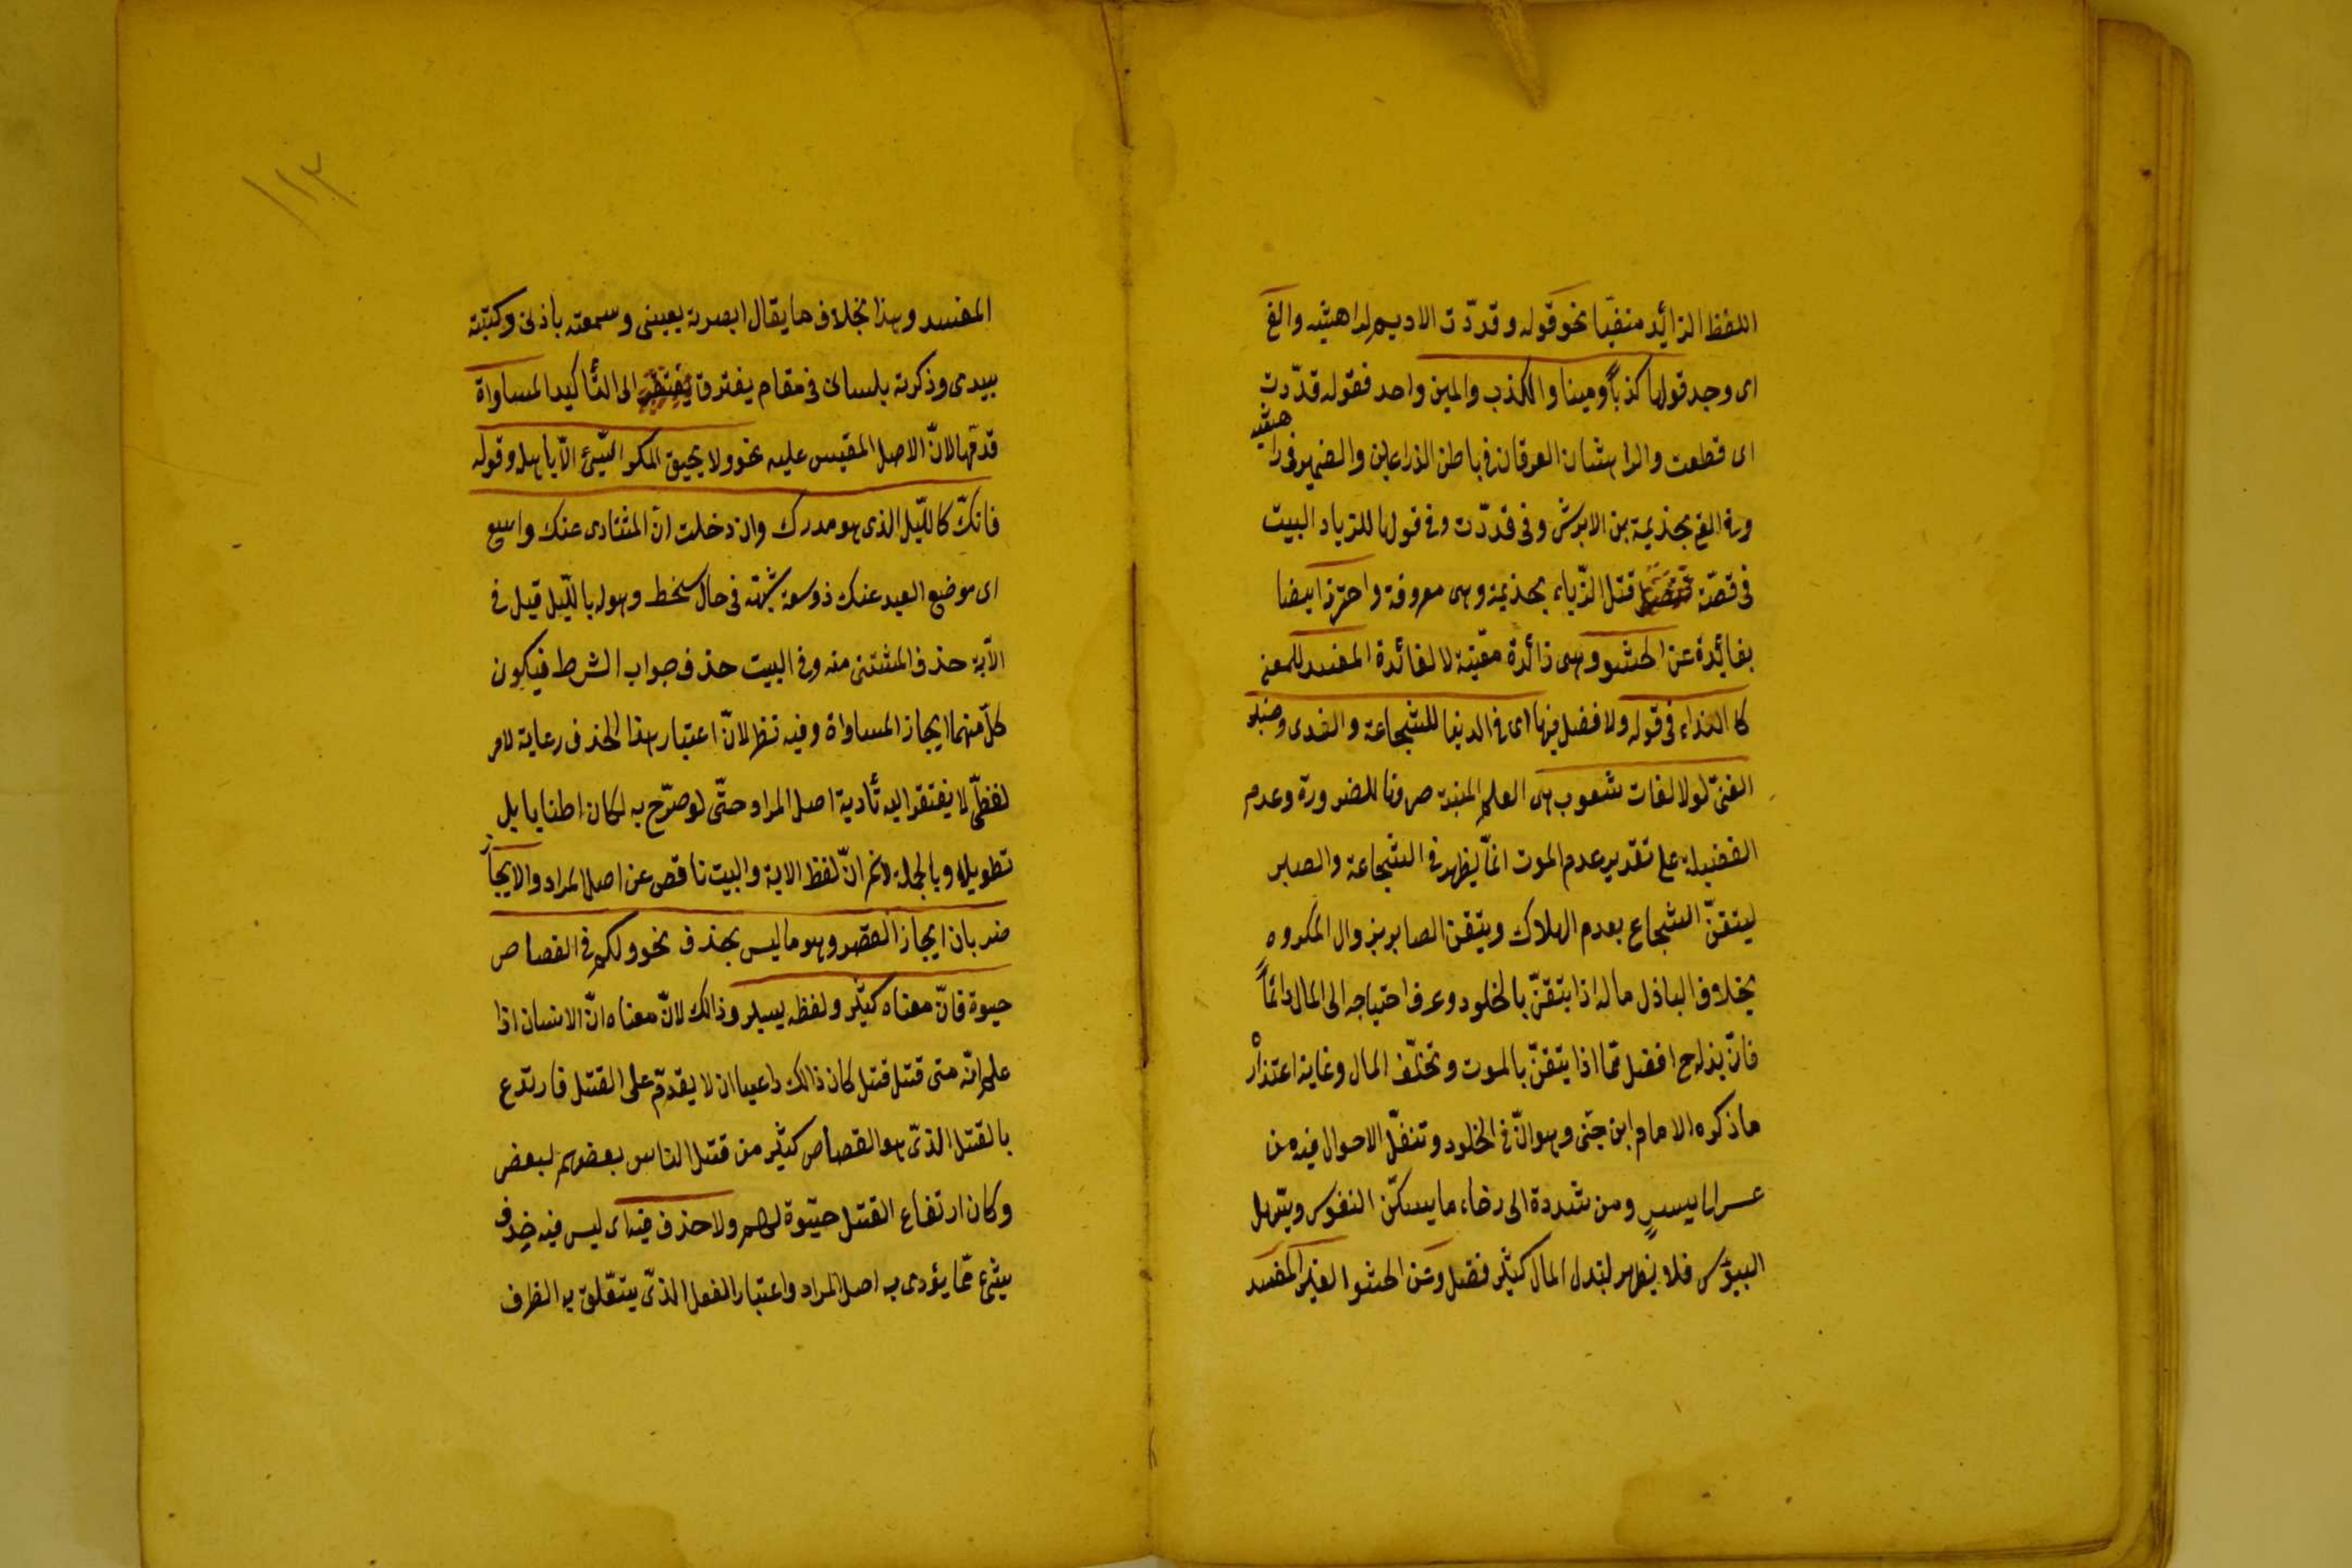 اللفظ الزائد متعيّنا نحو قوله وقدّدت الاديم لراهشيه والفى
اى وجد قولها كذباً ومينا والكذب والمين واحد فقوله قدّدت
اى قطعت والراهشان العرقان فى باطن الذراعين والضمير فى راهشيه
وفى الفى بجذيمة بن الابرش وفى قدّدت وفى قولها للزباء والبيت
فى قصّة قتل الزّباء بجذيمة وهى معروفة واحترز ايضا
بفائدة عن الحشو وهى زائدة معيّنة لا لفائدة المفسد للمعنى
كالنداء فى قوله ولا فضل فيها اى فى الدنيا للشجاعة والندى وصبر
الفتى لولا لقاء شعوب هى العلم المنية صرفها للضرورة وعدم
الفضيلة على تقدير عدم الموت انّما يظهر فى الشجاعة والصبر
ليتقنّ الشجاع بعدم الهلاك ويتيقن الصابر بزوال المكروه
بخلاف الباذل ماله اذا يتقنّ بالخلود وعرف احتياجه الى المال دائماً
فانّ بذله ح افضل ممّا اذا يتقنّ بالموت وتخلّف المال وغاية اعتذاره
ما ذكره الامام ابن جنّى وهو انّ فى الخلود وتنقّل الاحوال فيه من
عسر الى يسر ومن شددة الى رخاء ما يسكّن النفوس ويسهل
البؤس فلا يظهر لبذل المال كثير فضل وعن الحشو الغير المفسد
١١٣
المفسد وهذا بخلاف ما يقال ابصرته بعينى وسمعته باذنى وكتبته
بيدى وذكرته بلسانى فى مقام يفترق الى التأكيد المساواة
قدّمها لانّ الاصل المقيس عليه نحو ولا يحيق المكر السّيئ الّا باهله وقوله
فانّك كالليل الذى هو مدركى وان دخلت انّ المنتادى عنك واسع
اى موضع البعد عنك ذو سعة شبّهه فى حال سخطه وهوله بالليل قيل فى
الآية حذف المستثنى منه وفى البيت حذف جواب الشرط فيكون
كلّ منهما ايجاز المساواة وفيه نظر لانّ اعتبار هذا الحذف رعاية لامر
لفظىّ لا يفتقر اليه تأدية اصل المراد حتّى لو صرّح به لكان اطنابا بل
تطويلا وبالجملة لانم انّ لفظ الاية والبيت ناقص عن اصل المراد والايجاز
ضربان ايجاز القصر وهو ما ليس بحذف نحو ولكم فى القصاص
حيوة فانّ معناه كثير ولفظه يسير وذالك لانّ معناه انّ الانسان اذا
علم انّه متى قتل قتل كان ذالك داعيا ان لا يقدّم على القتل فارتدع
بالقتل الذىّ هو القصاص كثير من قتل الناس بعضهم لبعض
وكان ارتفاع القتل حيّوة لهم ولا حذف فيه اى ليس فيه حذف
شئ ممّا يؤدى به اصل المراد واعتبار الفعل الذىّ يتعّلق به الظرف